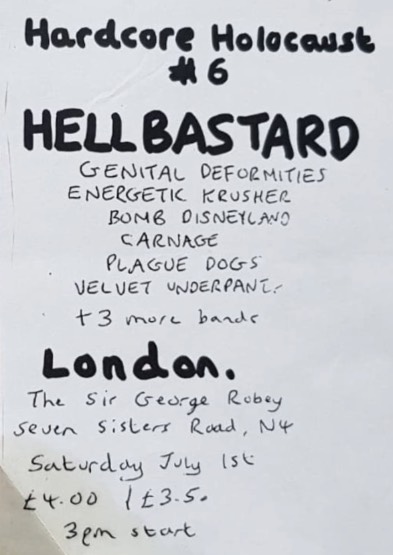 Hardcore Holocaust
#6
HELLBASTARD
GENITAL DEFORMITIES
ENERGETIC KRUSHER
BOMB DISNEYLAND
CARNAGE
PLAGUE DOGS
VELVET UNDERPANTS
+3 more bands
London.
The Sir George Robey
Seven Sisters Road, N4
Saturday July 1st
£4.00 / £3.50
3pm start